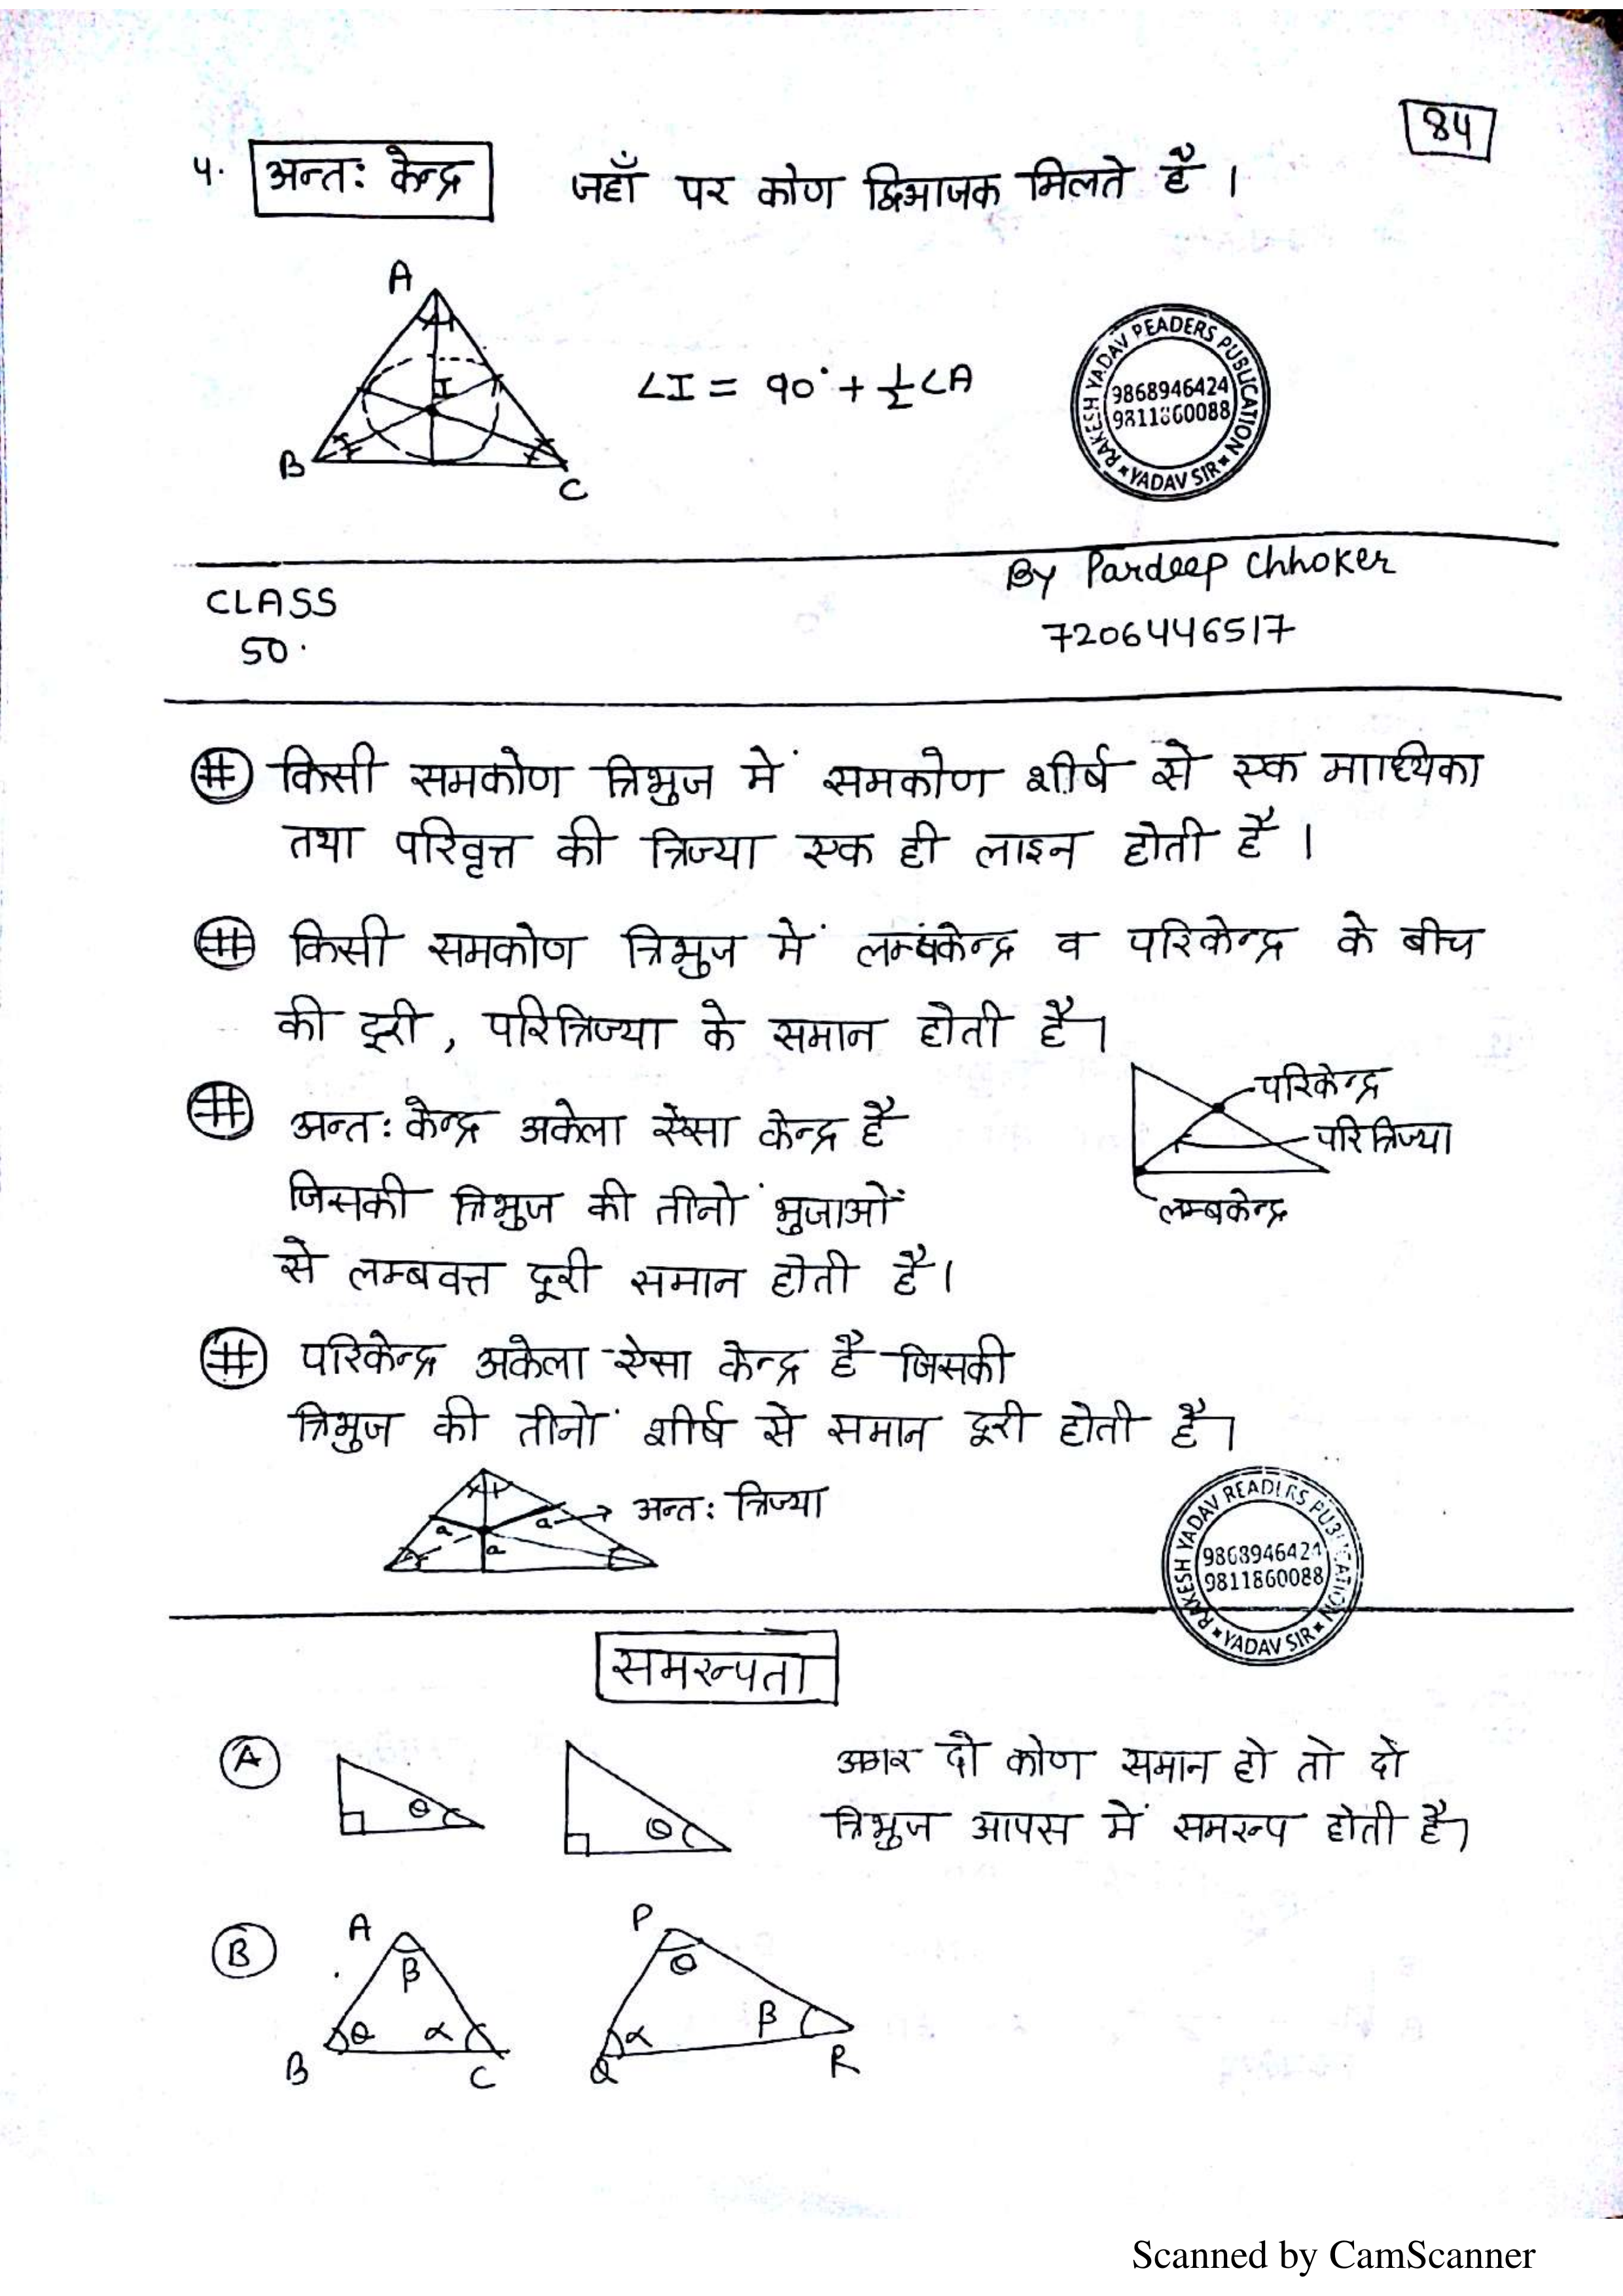 84
4. अन्तः केन्द्र जहाँ पर कोण द्विभाजक मिलते है ।
A
I
B
C
∠I = 90° + 1/2 ∠A
RAKESH YADAV READERS PUBLICATION
9868946424
9811860088
* YADAV SIR *
By Pardeep Chhoker
CLASS
50.
7206446517
# किसी समकोण त्रिभुज में समकोण शीर्ष से एक माध्यिका
तथा परिवृत्त की त्रिज्या एक ही लाइन होती है ।
# किसी समकोण त्रिभुज में लम्बकेन्द्र व परिकेन्द्र के बीच
की दूरी , परित्रिज्या के समान होती है।
परिकेन्द्र
परित्रिज्या
लम्बकेन्द्र
# अन्तः केन्द्र अकेला ऐसा केन्द्र है
जिसकी त्रिभुज की तीनों भुजाओं
से लम्बवत्त दूरी समान होती है।
# परिकेन्द्र अकेला ऐसा केन्द्र है जिसकी
त्रिभुज की तीनों शीर्ष से समान दूरी होती है।
a a a
अन्तः त्रिज्या
RAKESH YADAV READERS PUBLICATION
9868946424
9811860088
* YADAV SIR *
समरूपता
A θ θ अगर दो कोण समान हो तो दो
त्रिभुज आपस में समरूप होती है।
B
A
β
θ α
B C
P
θ
α β
Q R
Scanned by CamScanner